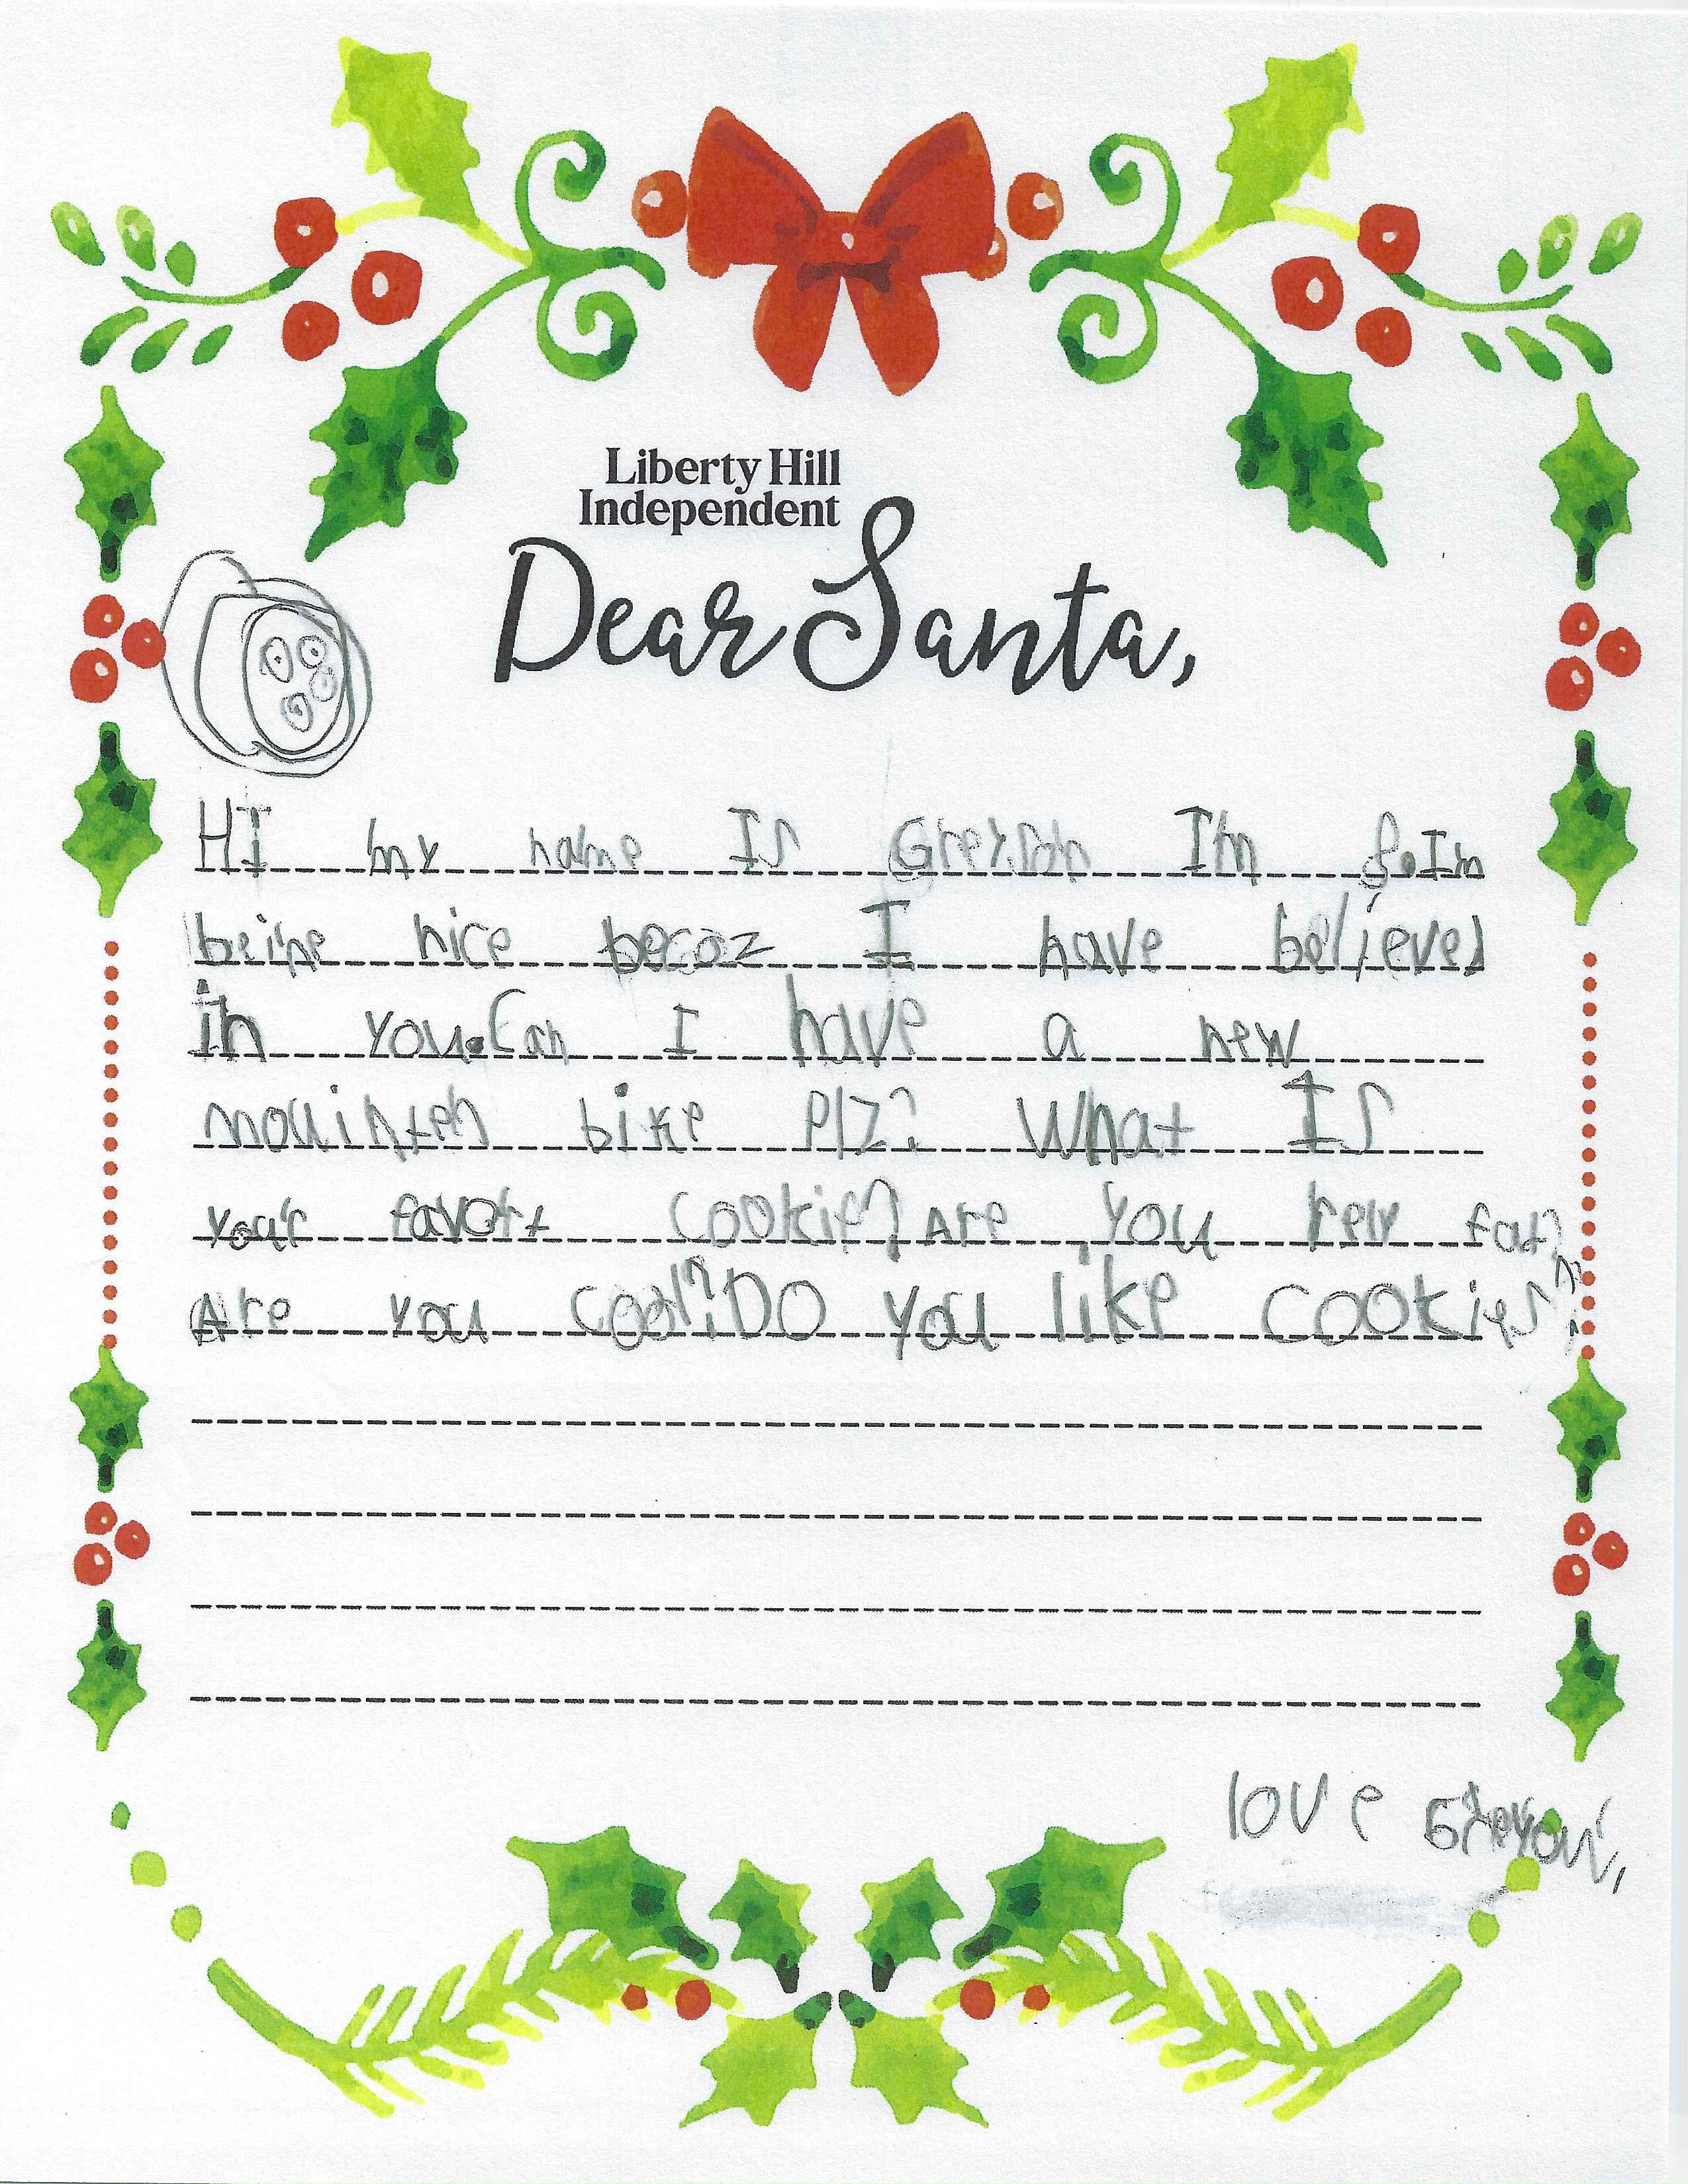 Liberty Hill
Independent
Dear Santa,
HI my name Is Greyson I'm 8. I'm
beine nice becoz I have believed
in you. Can I have a new
mouinten bike plz? What Is
your favort cookie? Are you rely fat?
Are you cool? DO you like cookies?
love Greyson,